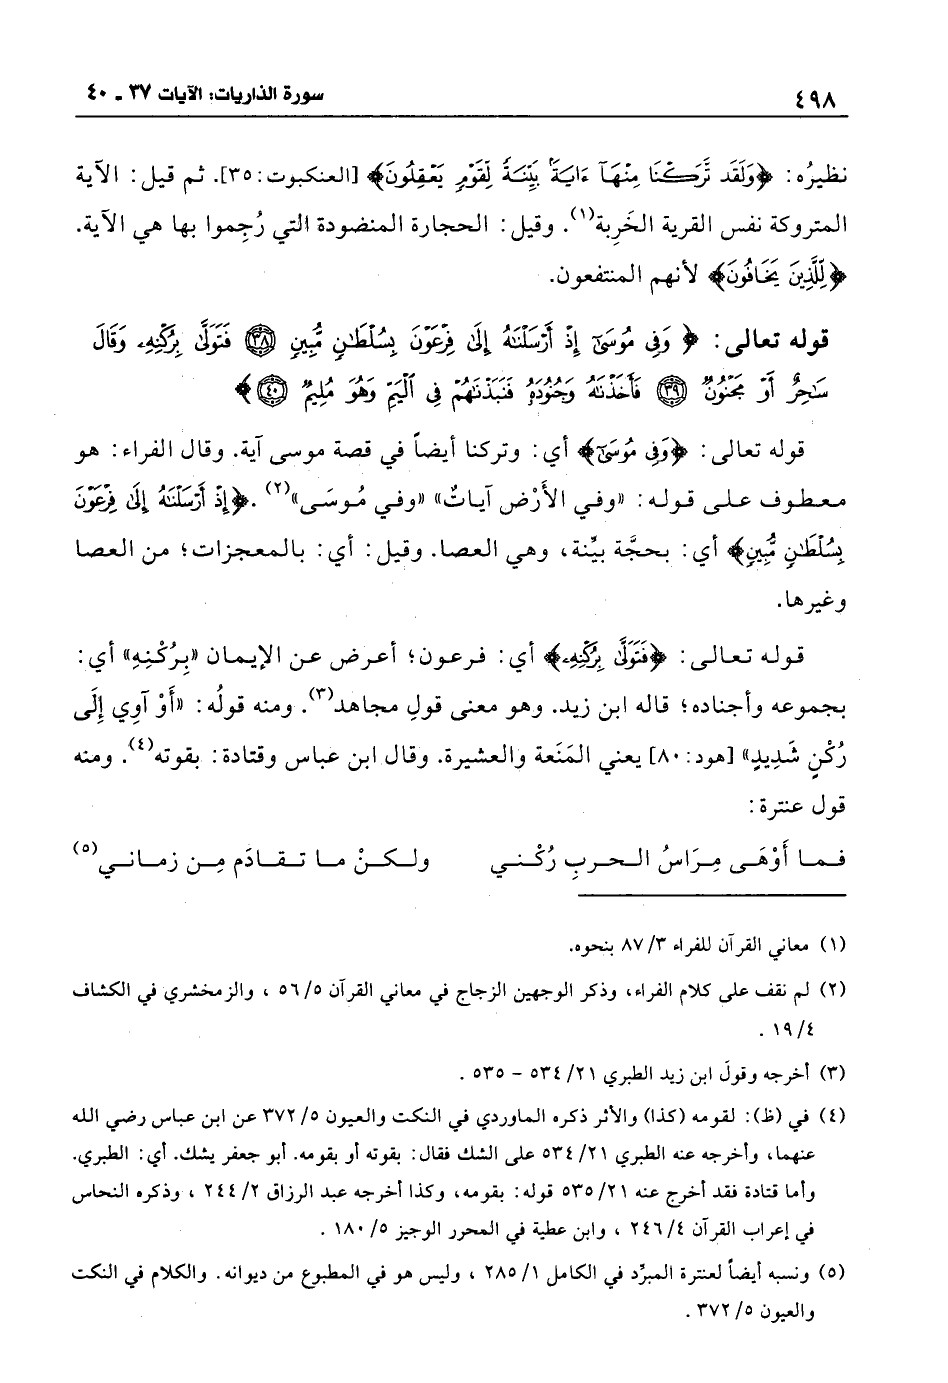 ٤٩٨
سورة الذاريات: الآيات ٣٧ ـ ٤٠
نظيرُه: ﴿وَلَقَد تَّرَكْنَا مِنْهَآ ءَايَةًۢ بَيِّنَةً لِّقَوْمٍ يَعْقِلُونَ﴾ [العنكبوت:٣٥]. ثم قيل: الآية
المتروكة نفس القرية الخَرِبة(١). وقيل: الحجارة المنضودة التي رُجِموا بها هي الآية.
﴿لِّلَّذِينَ يَخَافُونَ﴾ لأنهم المنتفعون.
قوله تعالى: ﴿وَفِى مُوسَىٰٓ إِذْ أَرْسَلْنَٰهُ إِلَىٰ فِرْعَوْنَ بِسُلْطَٰنٍ مُّبِينٍ ٣٨ فَتَوَلَّىٰ بِرُكْنِهِۦ وَقَالَ
سَٰحِرٌ أَوْ مَجْنُونٌ ٣٩ فَأَخَذْنَٰهُ وَجُنُودَهُۥ فَنَبَذْنَٰهُمْ فِى ٱلْيَمِّ وَهُوَ مُلِيمٌ ٤٠﴾
قوله تعالى: ﴿وَفِى مُوسَىٰٓ﴾ أي: وتركنا أيضاً في قصة موسى آية. وقال الفراء: هو
معطوف على قوله: «وفي الأَرْض آياتٌ» «وفي مُوسَى»(٢). ﴿إِذْ أَرْسَلْنَٰهُ إِلَىٰ فِرْعَوْنَ
بِسُلْطَٰنٍ مُّبِينٍ﴾ أي: بحجَّة بيِّنة، وهي العصا. وقيل: أي: بالمعجزات؛ من العصا
وغيرها.
قوله تعالى: ﴿فَتَوَلَّىٰ بِرُكْنِهِۦ﴾ أي: فرعون؛ أعرض عن الإيمان «بِرُكْنِهِ» أي:
بجموعه وأجناده؛ قاله ابن زيد. وهو معنى قولِ مجاهد(٣). ومنه قولُه: «أَوْ آوِي إِلَى
رُكْنٍ شَدِيدٍ» [هود:٨٠] يعني المَنَعة والعشيرة. وقال ابن عباس وقتادة: بقوته(٤). ومنه
قول عنترة:
فما أَوْهَى مِرَاسُ الحربِ رُكْني ولكنْ ما تقادَم مِن زماني(٥)
(١) معاني القرآن للفراء ٨٧/٣ بنحوه.
(٢) لم نقف على كلام الفراء، وذكر الوجهين الزجاج في معاني القرآن ٥٦/٥ ، والزمخشري في الكشاف
١٩/٤ .
(٣) أخرجه وقولَ ابن زيد الطبري ٥٣٤/٢١ - ٥٣٥ .
(٤) في (ظ): لقومه (كذا) والأثر ذكره الماوردي في النكت والعيون ٣٧٢/٥ عن ابن عباس رضي الله
عنهما، وأخرجه عنه الطبري ٥٣٤/٢١ على الشك فقال: بقوته أو بقومه. أبو جعفر يشك. أي: الطبري.
وأما قتادة فقد أخرج عنه ٥٣٥/٢١ قوله: بقومه، وكذا أخرجه عبد الرزاق ٢٤٤/٢ ، وذكره النحاس
في إعراب القرآن ٢٤٦/٤ ، وابن عطية في المحرر الوجيز ١٨٠/٥ .
(٥) ونسبه أيضاً لعنترة المبرِّد في الكامل ٢٨٥/١ ، وليس هو في المطبوع من ديوانه. والكلام في النكت
والعيون ٣٧٢/٥ .